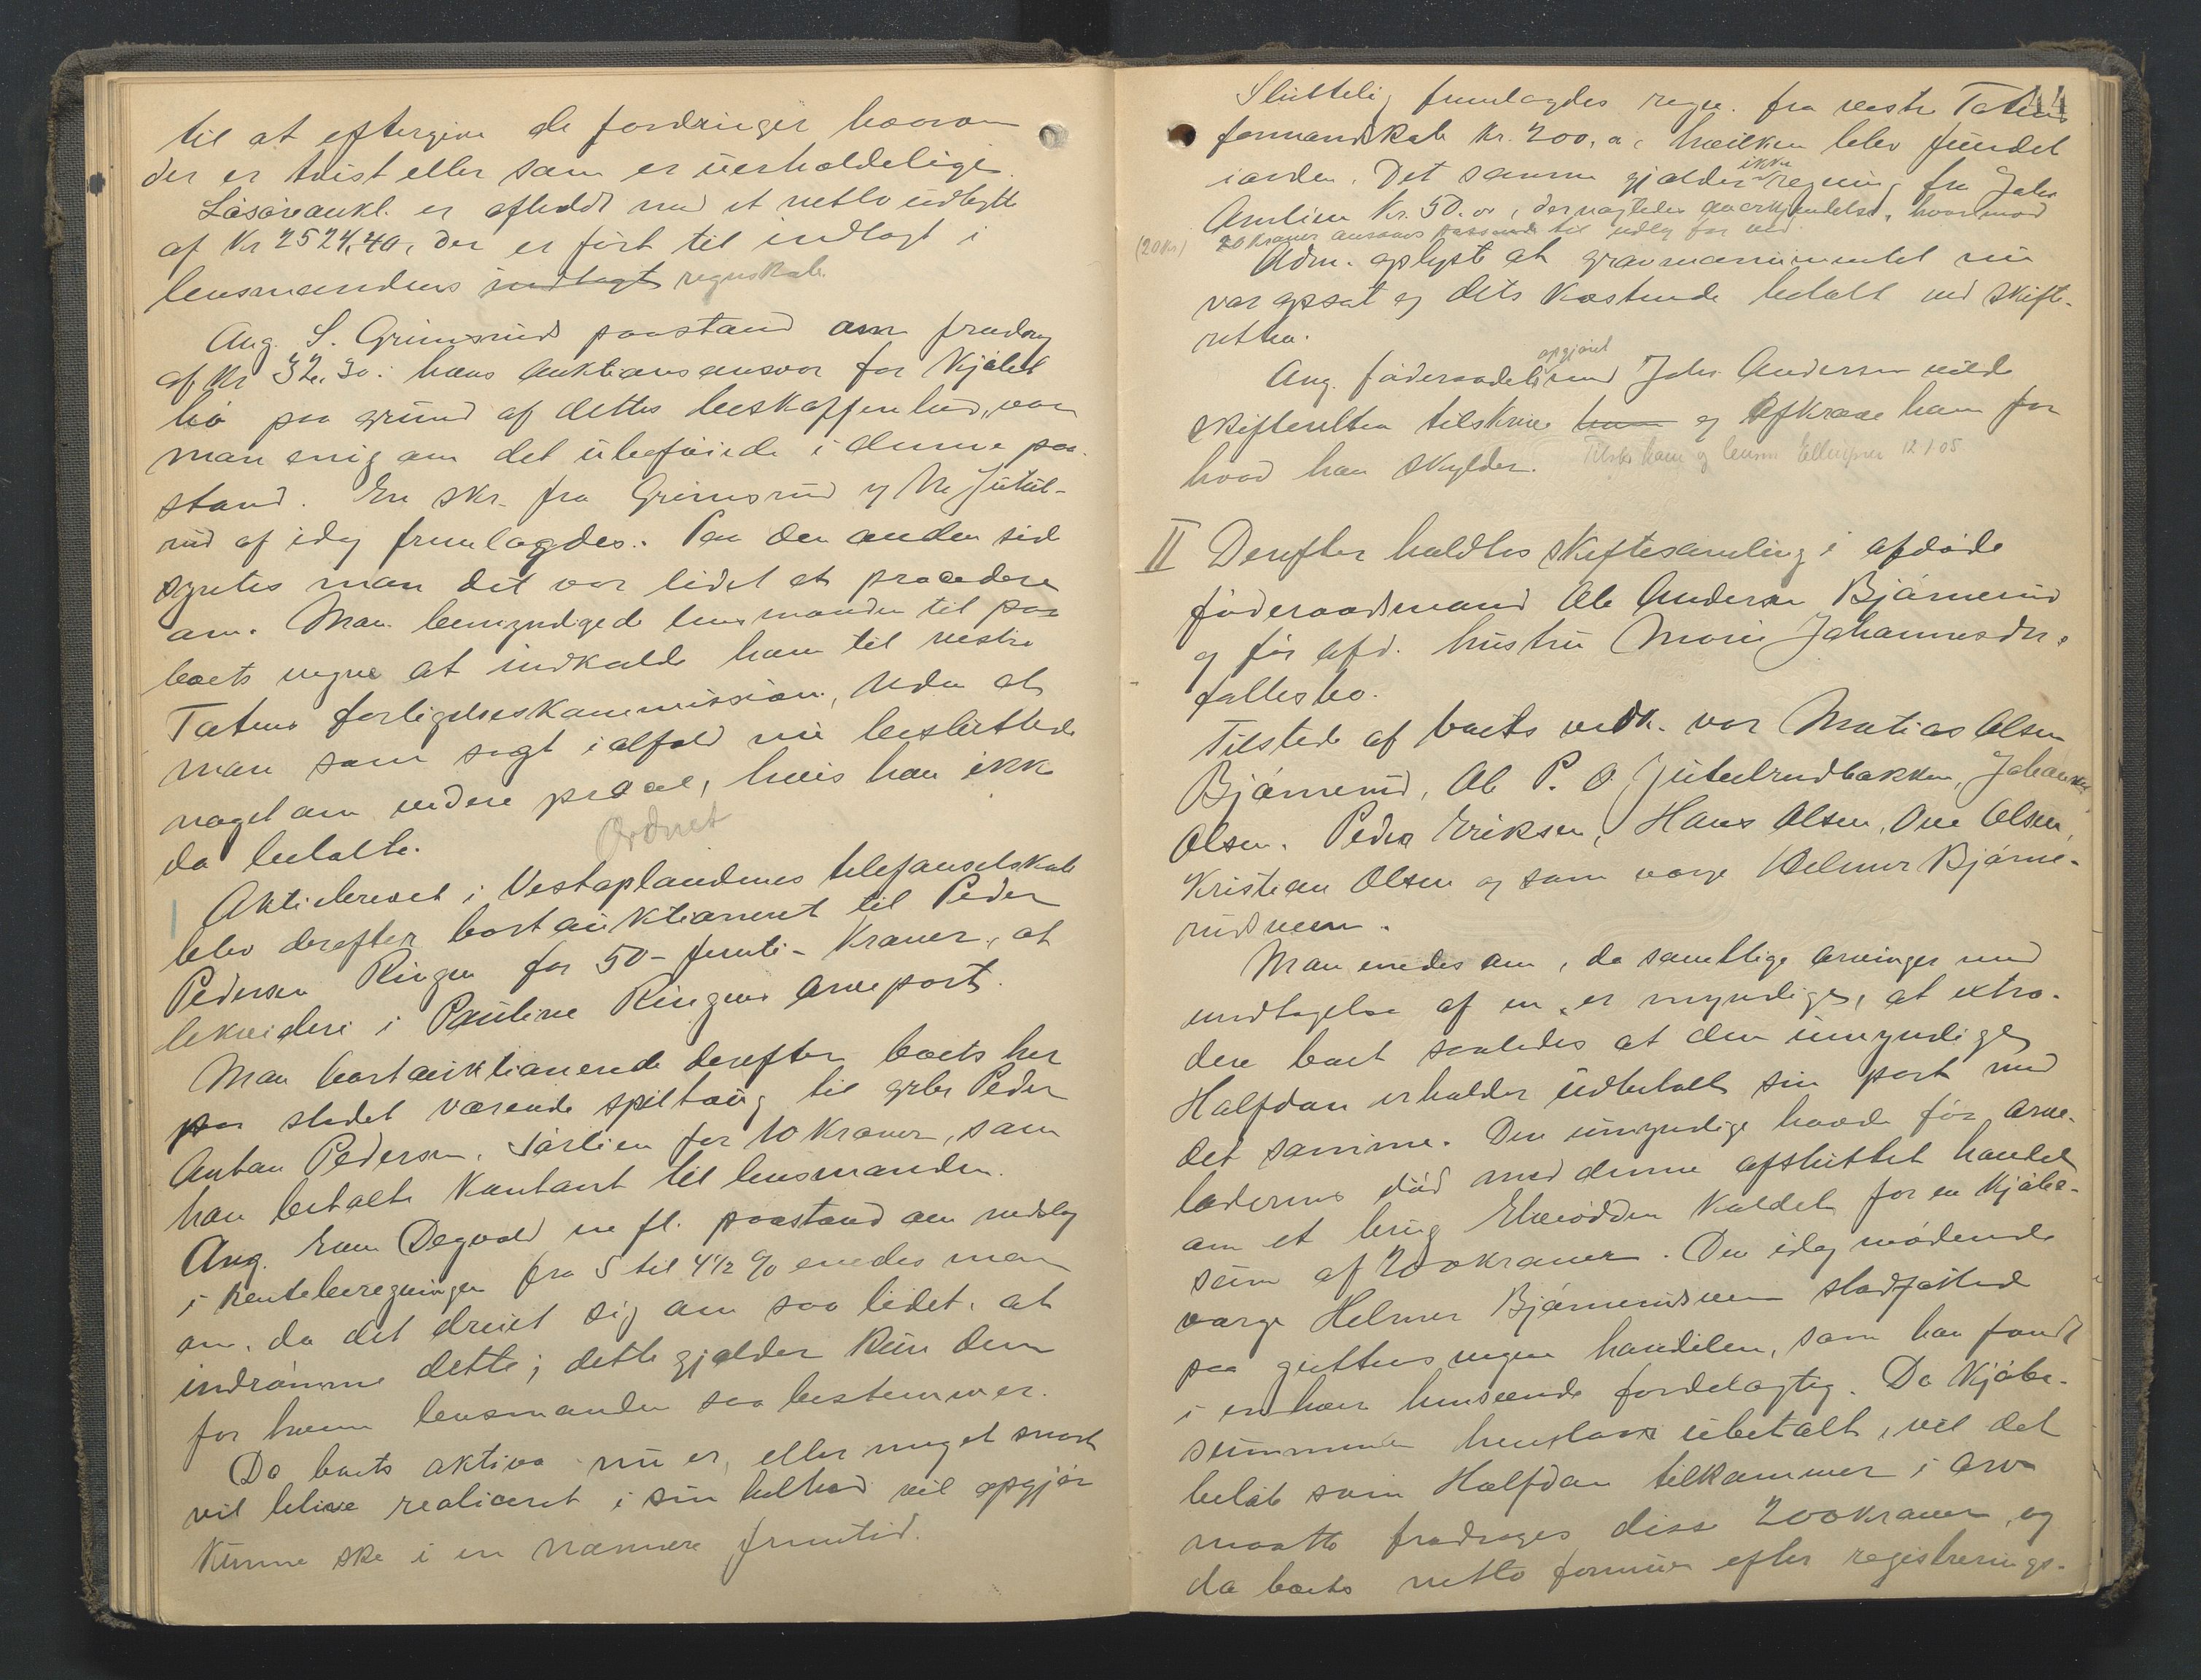 til at eftergive de fordringer hvorom
der er tvist eller som er uerholdelige.
Løsøreaukt. er afholdt med et netto udbytte
af Kr 2524,40, der er ført til indtægt i
lensmandens indtægt regnskab.
Ang. S. Grimsruds paastand om fradrag
af Kr 32.30. i hans auktionsansvar for kjøbt
hø paa grund af dettes beskaffenhed, var
man enig om det ubeføiede i denne paa-
stand. En skr. fra Grimsrud og M. Jutul-
rud af idag fremlagdes. Paa den anden side
syntes man det var lidet at procedere
om. Man bemyndigede lensmanden til paa
boets vegne at indkalde ham til vestre
Totens forligelseskommission, uden at
man som sagt ialfald nu besluttede
noget om videre prosal, hvis han ikke
da betalte.
Ordnet
Aktiebrevet i Vestoplandenes telefonselskab
blev derefter bortauktioneret til Peder
Pedersen Ringen for 50 - femti - Kroner, at
likvidere i Pauline Ringens arvepart.
Man bortauktionerede derefter boets her
paa stedet værende spiltaug til gbr. Peder
Anton Pedersen. Sørlien for 10 Kroner, som
han betalte kontant til lensmanden.
Ang. Even Degvold m fl. paastand om nedslag
i renteberegningen fra 5 til 4 1/2 % enedes man
om, da det dreiet sig om saa lidet, at
indrømme dette; dette gjælder kun dem
for hvem lensmanden saa bestemmer.
Da boets aktiva nu er, eller meget snart
vil blive realiceret i sin helhed vil opgjør
kunne ske i en nærmere fremtid.
44
Sluttelig fremlagdes regn. fra vestre Totens
formandskab Kr. 200, o, hvilken blev fundet
iorden. Det samme gjælder ikke regning fra Johs
Amlien Kr. 50. oo, der nægtedes anerkjendelse, hvorimod
(20 Kr.) 20 kroner ansaaes passende til udlæg for ved.
Adm. oplyste at gravmonumentet nu
var opsat og dets kostende betalt ved skifte-
retten.
Ang. føderaadets opgjøret med Johs Andersen vilde
skifteretten tilskrive ham og afkræve ham for
hvad han skylder. Tilskr. ham og lensm Ellingsen 12/1 05
II Derefter holdtes skiftesamling i afdøde
føderaadsmand Ole Andersen Bjørnerud
og før afd. hustru Marie Johannesdtr.
fællesbo.
Tilstede af boets vedk. var Matias Olsen
Bjørnerud, Ole P. O. Jutulrudbakken, Johannes
Olsen. Peder Eriksen, Hans Olsen, Ove Olsen,
Kristian Olsen og som verge Helmer Bjørne-
rudsveen.
Man enedes om, da samtlige arvinger med
undtagelse af en er myndige, at extra-
dere boet saaledes at den umyndige
Halfdan erholder udbetalt sin part med
det samme. Den umyndige havde før arve-
laderens død med denne afsluttet handel
om et brug Elveodden kaldet for en kjøbe-
sum af 200 kroner. Den idag mødende
verge Helmer Bjørnerudsveen stadfæstede
paa guttens vegne handelen, som han fandt
i enhver henseende fordelagtig. Da kjøbe-
summen henstaar ubetalt, vil det
beløb som Halfdan tilkommer i arv
maatte fradrages disse 200 kroner, og
da boets netto formue efter registrerings-